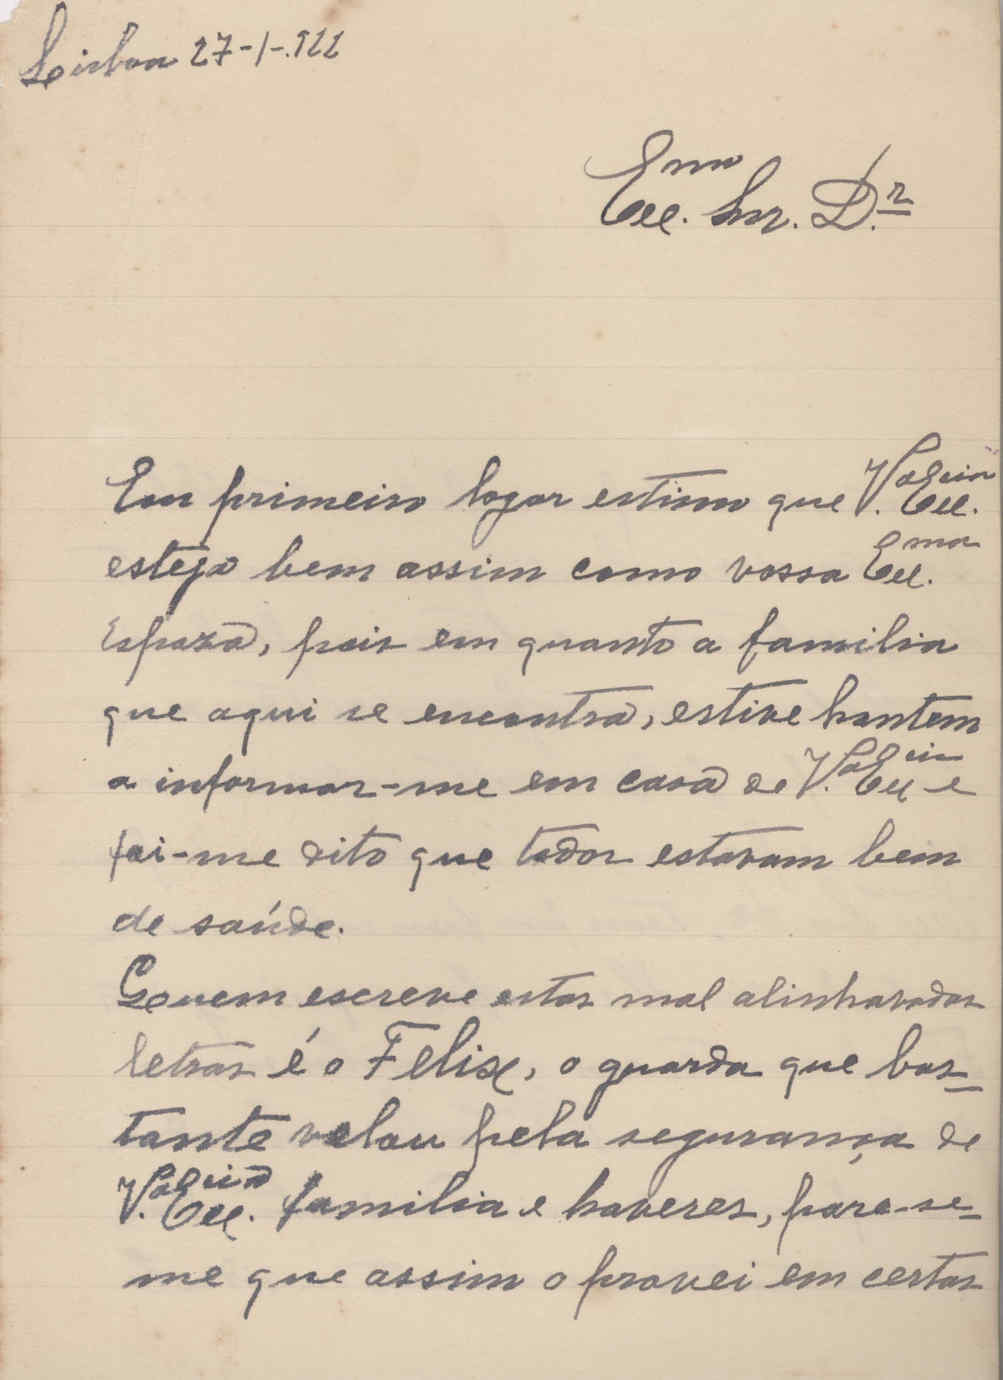 Lisboa 27-1-922
Exc.mo Snr. D.r
Em primeiro logar estimo que V.a Exc.cia
esteja bem assim como vossa Exc.ma
Espoza, pois em quanto a familia
que aqui se encontra, estive hontem
a informar-me em casa de V.a Exc.cia e
foi-me dito que todos estavam bem
de saúde.
Quem escreve estas mal alinhavadas
letras é o Felix, o guarda que bas-
tante velou pela segurança de
V.a Exc.cia familia e haveres, pare-se-
me que assim o provei em certas